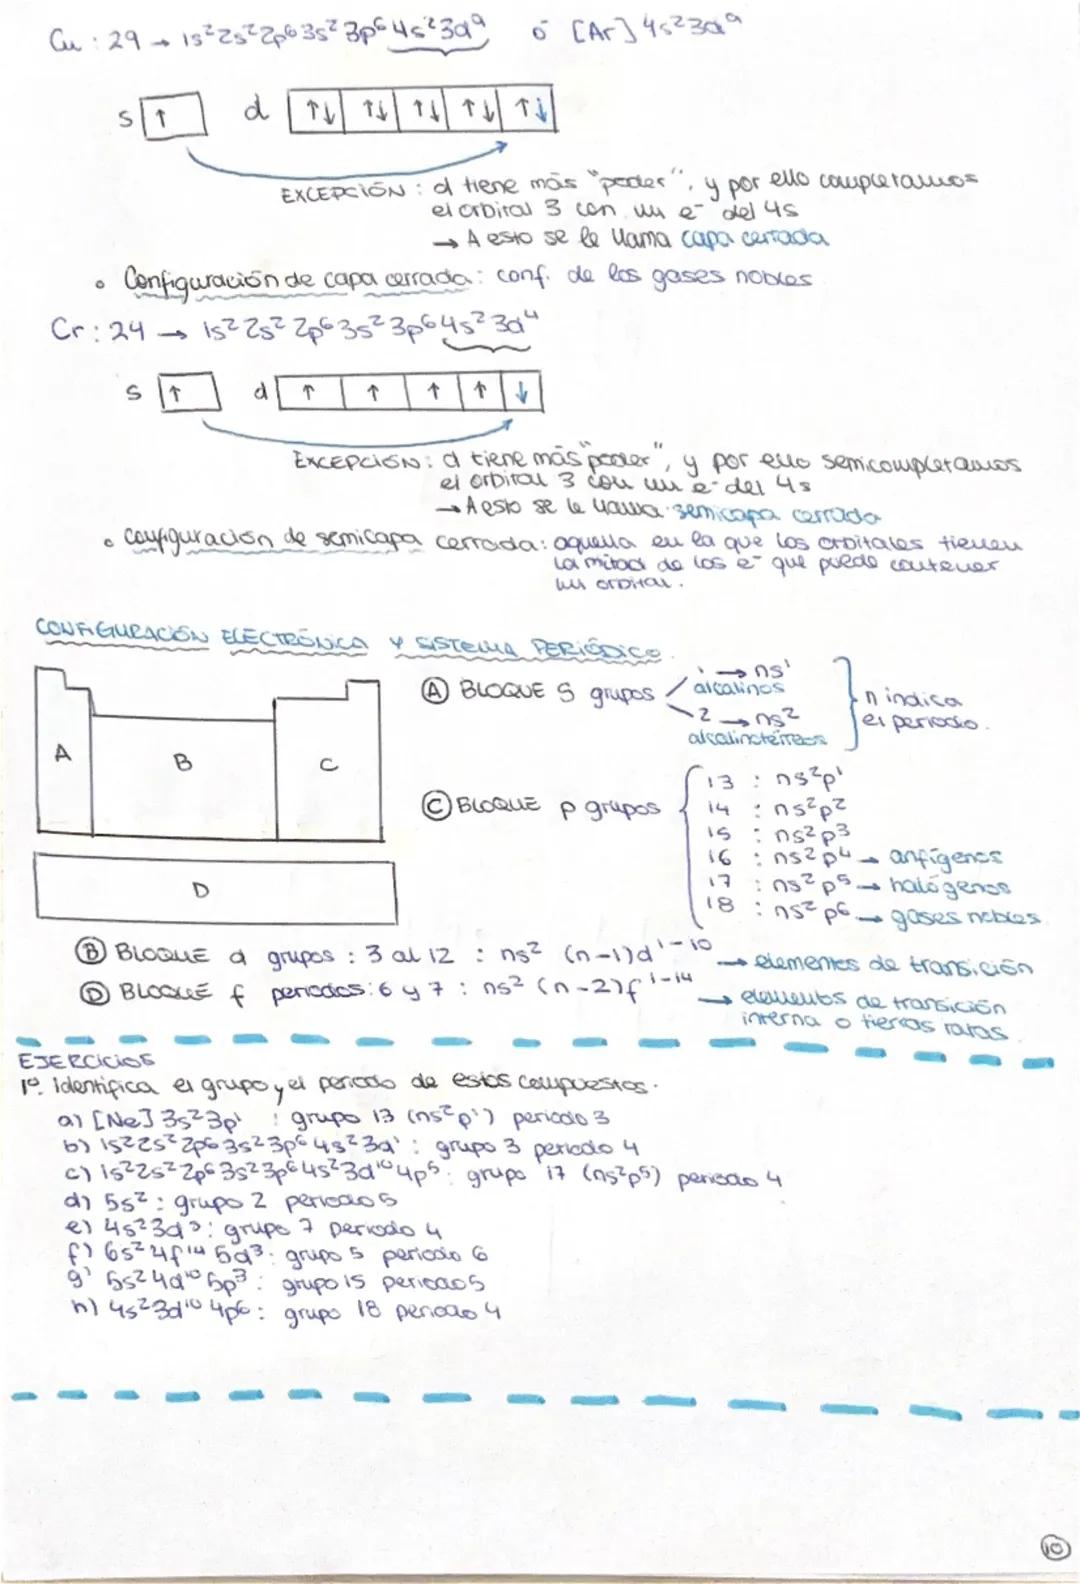 Cu : 29 → 1s² 2s² 2p⁶ 3s² 3p⁶ 4s² 3d⁹ ó [Ar] 4s² 3d⁹
s ↑ d ↑↓ ↑↓ ↑↓ ↑↓ ↑↓
EXCEPCIÓN : d tiene más "poder", y por ello completamos
el orbital 3 con un e⁻ del 4s
→ A esto se le llama capa cerrada
• Configuración de capa cerrada: conf. de los gases nobles
Cr : 24 → 1s² 2s² 2p⁶ 3s² 3p⁶ 4s² 3d⁴
s ↑ d ↑ ↑ ↑ ↑ ↓
EXCEPCIÓN : d tiene más "poder", y por ello semicompletamos
el orbital 3 con un e⁻ del 4s
→ A esto se le llama semicapa cerrada
• Configuración de semicapa cerrada: aquella en la que los orbitales tienen
la mitad de los e⁻ que puede contener
un orbital.
CONFIGURACIÓN ELECTRÓNICA Y SISTEMA PERIÓDICO.
A B C D
Ⓐ BLOQUE S grupos
1 → ns¹
alcalinos
2 → ns²
alcalinotérreos
n indica
el periodo.
Ⓒ BLOQUE p grupos
13 : ns²p¹
14 : ns²p²
15 : ns²p³
16 : ns²p⁴ → anfígenos
17 : ns²p⁵ → halógenos
18 : ns²p⁶ → gases nobles.
Ⓑ BLOQUE d grupos : 3 al 12 : ns² (n-1)d¹⁻¹⁰ → elementos de transición
Ⓓ BLOQUE f periodos: 6 y 7 : ns² (n-2)f¹⁻¹⁴ → elementos de transición
interna o tierras raras.
EJERCICIOS
1º. Identifica el grupo y el periodo de estos compuestos.
a) [Ne] 3s²3p¹ : grupo 13 (ns²p¹) periodo 3
b) 1s²2s²2p⁶3s²3p⁶4s²3d¹ : grupo 3 periodo 4
c) 1s²2s²2p⁶3s²3p⁶4s²3d¹⁰4p⁵: grupo 17 (ns²p⁵) periodo 4
d) 5s² : grupo 2 periodo 5
e) 4s²3d⁵: grupo 7 periodo 4
f) 6s²4f¹⁴5d³: grupo 5 periodo 6
g) 5s²4d¹⁰5p³: grupo 15 periodo 5
h) 4s²3d¹⁰4p⁶: grupo 18 periodo 4
10